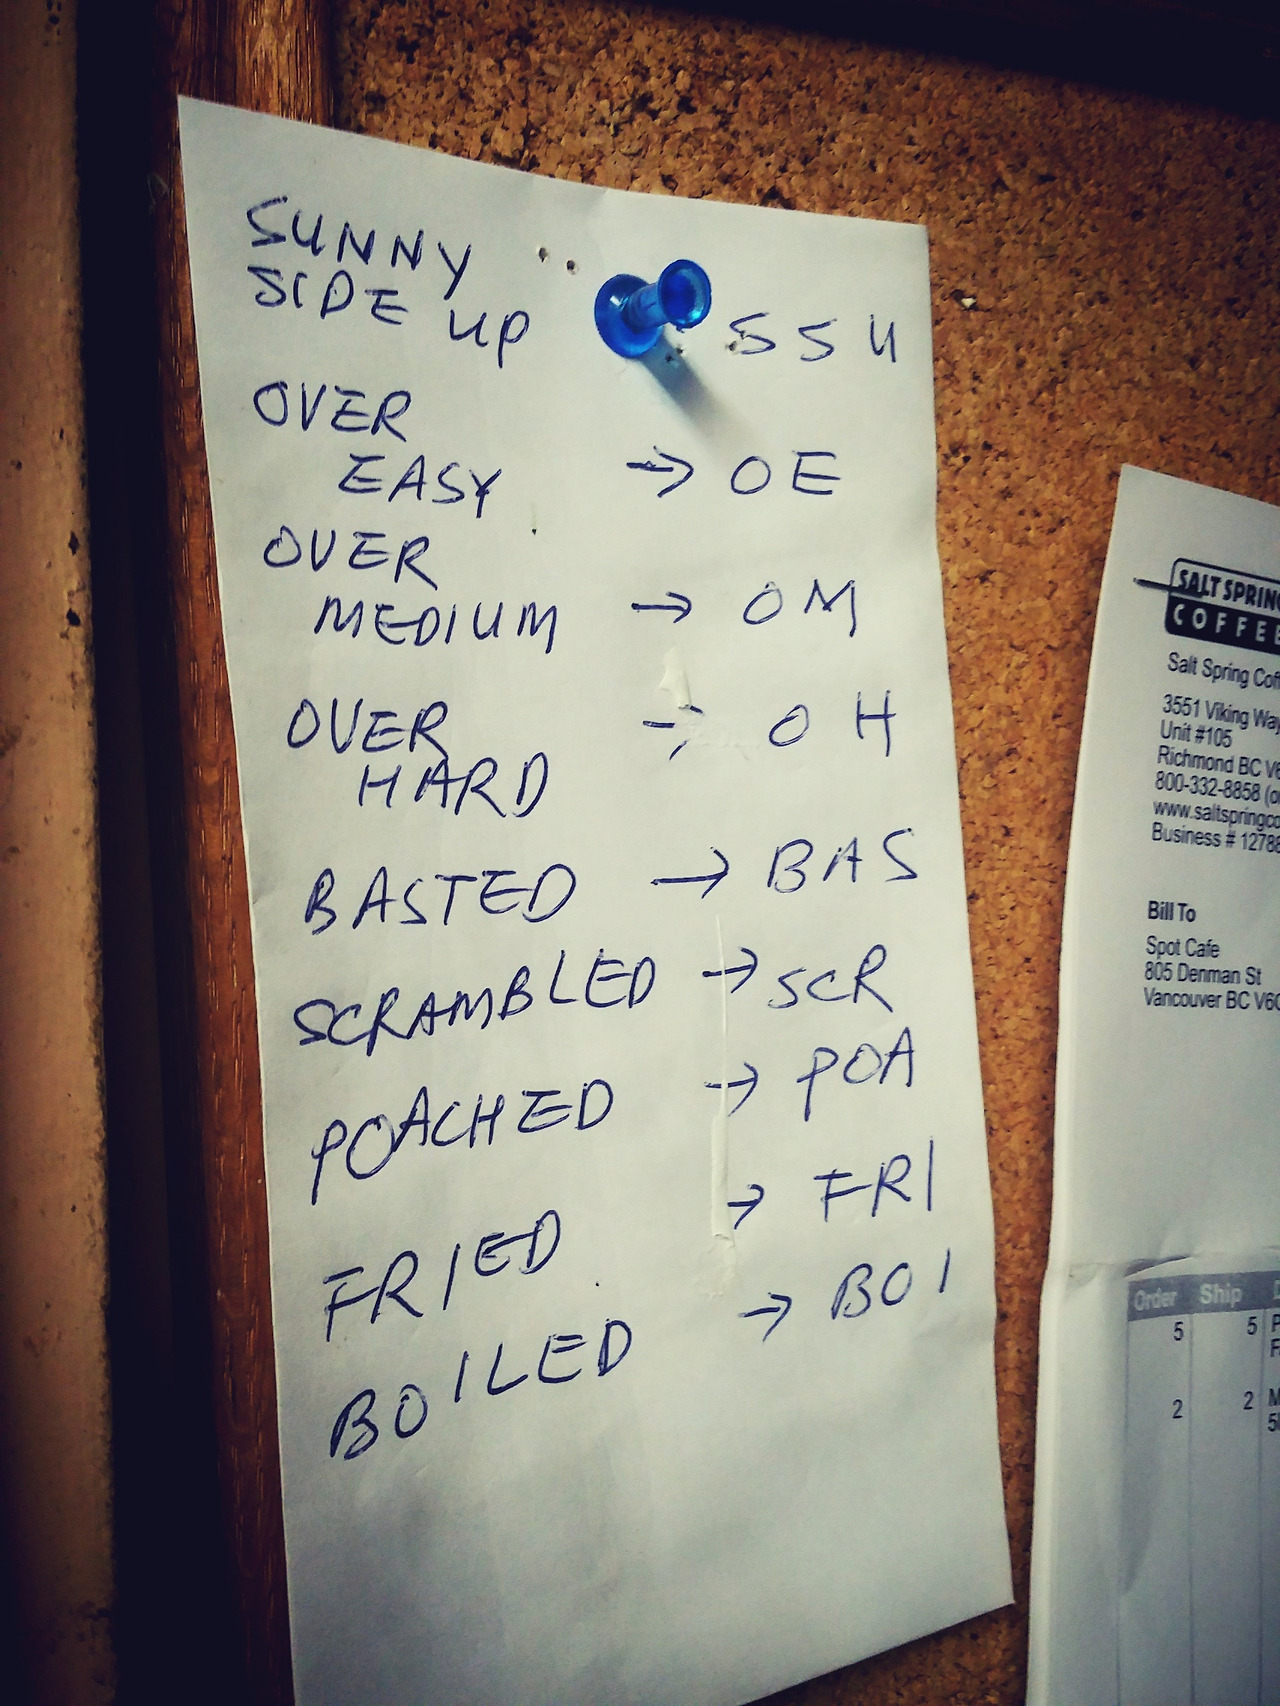 SUNNY
SIDE UP SSU
OVER
EASY → OE
OVER
MEDIUM → OM
OVER → OH
HARD
BASTED → BAS
SCRAMBLED → SCR
POACHED → POA
FRIED → FRI
BOILED → BOI
SALT SPRING
COFFEE
Salt Spring
3551 Viking Way
Unit #105
Richmond BC
800-332-8858
Business #
Bill To
Spot Cafe
805 Denman St
Vancouver BC
Order Ship
5 5
2 2